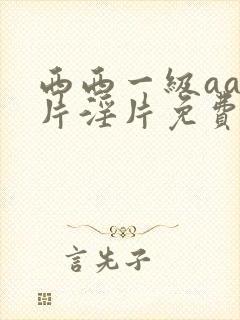 西西一级aa
片淫片免費
言先子